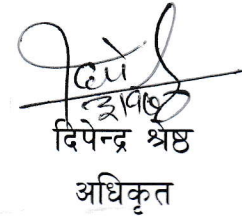 दिपेन्द्र श्रेष्ठ
अधिकृत